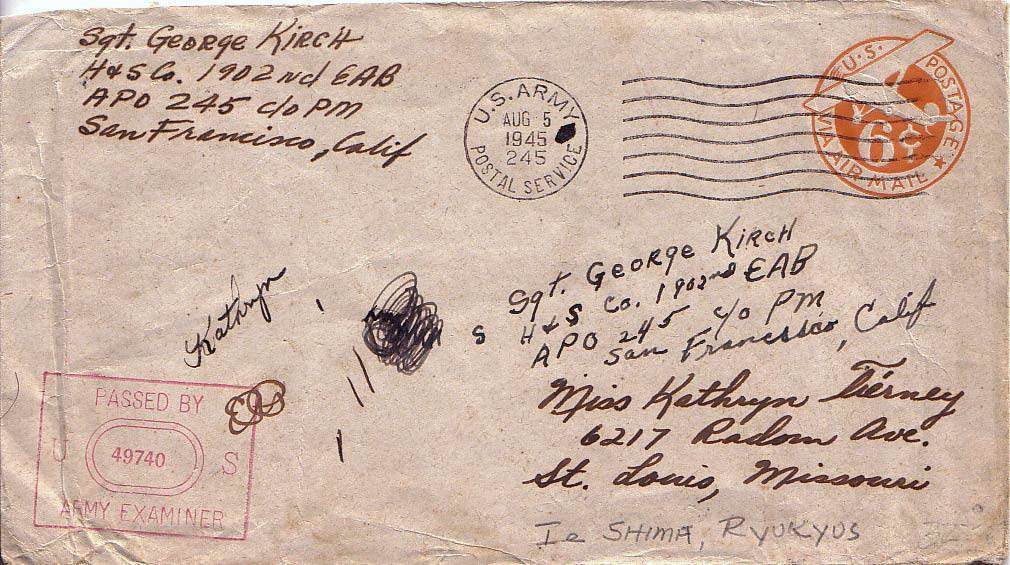 Sgt. George Kirch
H & S Co. 1902nd EAB
APO 245 c/o PM
San Francisco, Calif
U.S. ARMY
AUG 5
1945
245
POSTAL SERVICE
U.S. POSTAGE
6¢
VIA AIR MAIL
Kathryn
S
Sgt. George Kirch
H & S Co. 1902nd EAB
APO 245 c/o PM
San Francisco, Calif
Miss Kathryn Tierney
6217 Radom Ave.
St. Louis, Missouri
PASSED BY
U 49740 S
ARMY EXAMINER
Ie SHIMA, RYUKYUS